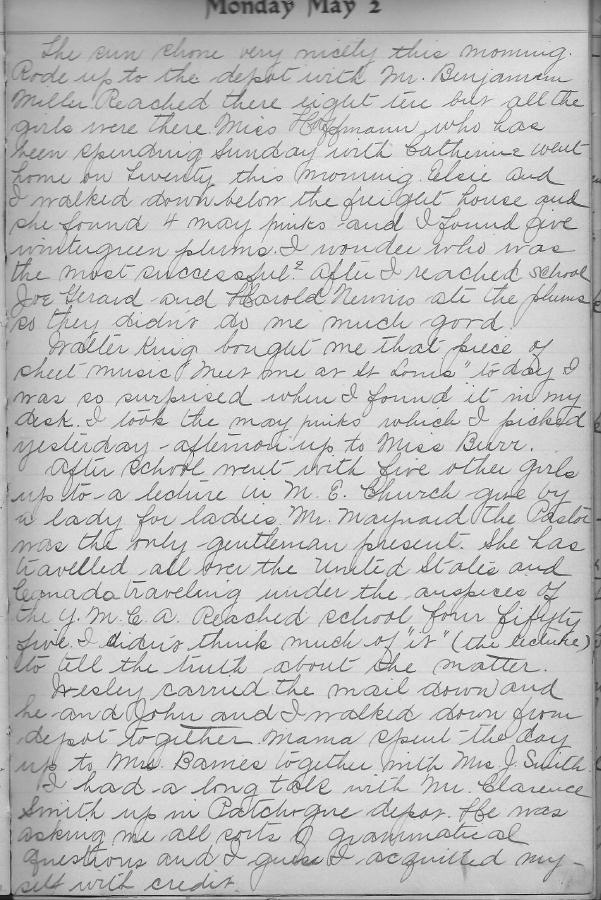 Monday May 2
The sun shone very nicely this morning.
Rode up to the depot with Mr. Benjamin
Miller. Reached there eight ten but all the
girls were there. Miss Hoffmann, who has
been spending Sunday with Catherine went
home on twenty this morning. Elsie and
I walked down below the freight house and
she found 4 may pinks and I found five
wintergreen plums. I wonder who was
the most successful? After I reached school
Joe Gerard and Harold ate the plums
so they didn't do me much good.
Walter King bought me that piece of
sheet music "Meet me at St Louis" today I
was so surprised when I found it in my
desk. I took the may pinks which I picked
yesterday afternoon up to Miss Burr.
After school went with five other girls
up to a lecture in M. E. Church give by
a lady for ladies. Mr. Maynard the Pastor
was the only gentleman present. She has
travelled all over the United States and
Canada traveling under the auspices of
the Y. M. C. A. Reached school four fifyty
five. I didn't think much of "it" (the lecture)
to tell the truth about the matter.
Wesley carried the mail down and
he and John and I walked down from
depot together. Mama spent the day
up to Mrs Barnes together with Mrs. J. Smith.
I had a long talk with Mr. Clarence
Smith up in Patchogue depot. He was
asking me all sorts of grammatical
questions and I guess I acquitted my-
self with credit.